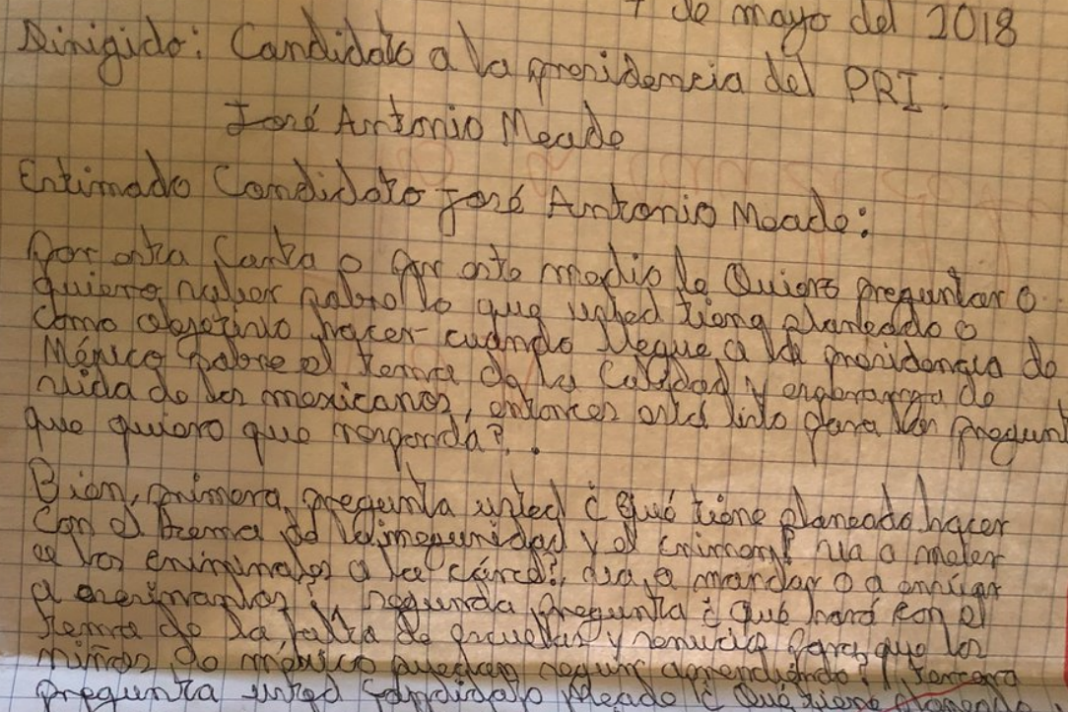 de mayo del 2018
Dirigido: Candidato a la presidencia del PRI:
José Antonio Meade
Estimado Candidato José Antonio Meade:
Por esta Carta o por este medio le Quiero preguntar o
quiero saber sobre lo que usted tiene planeado o
como objetivo hacer cuando llegue a la presidencia de
México sobre el tema de la Calidad y esperanza de
vida de los mexicanos, entonces está listo para las pregunt
que quiero que responda?.
Bien, primera pregunta usted ¿Qué tiene planeado hacer
con el tema de la impunidad y el crimen? va a meter
a los criminales a la cárcel, va a mandar o a
a segunda pregunta ¿Qué hará con el
tema de la falta de escuelas y servicios para que los
niños de méxico puedan seguir aprendiendo?, tercera
pregunta usted candidato Meade ¿Qué tiene planeado